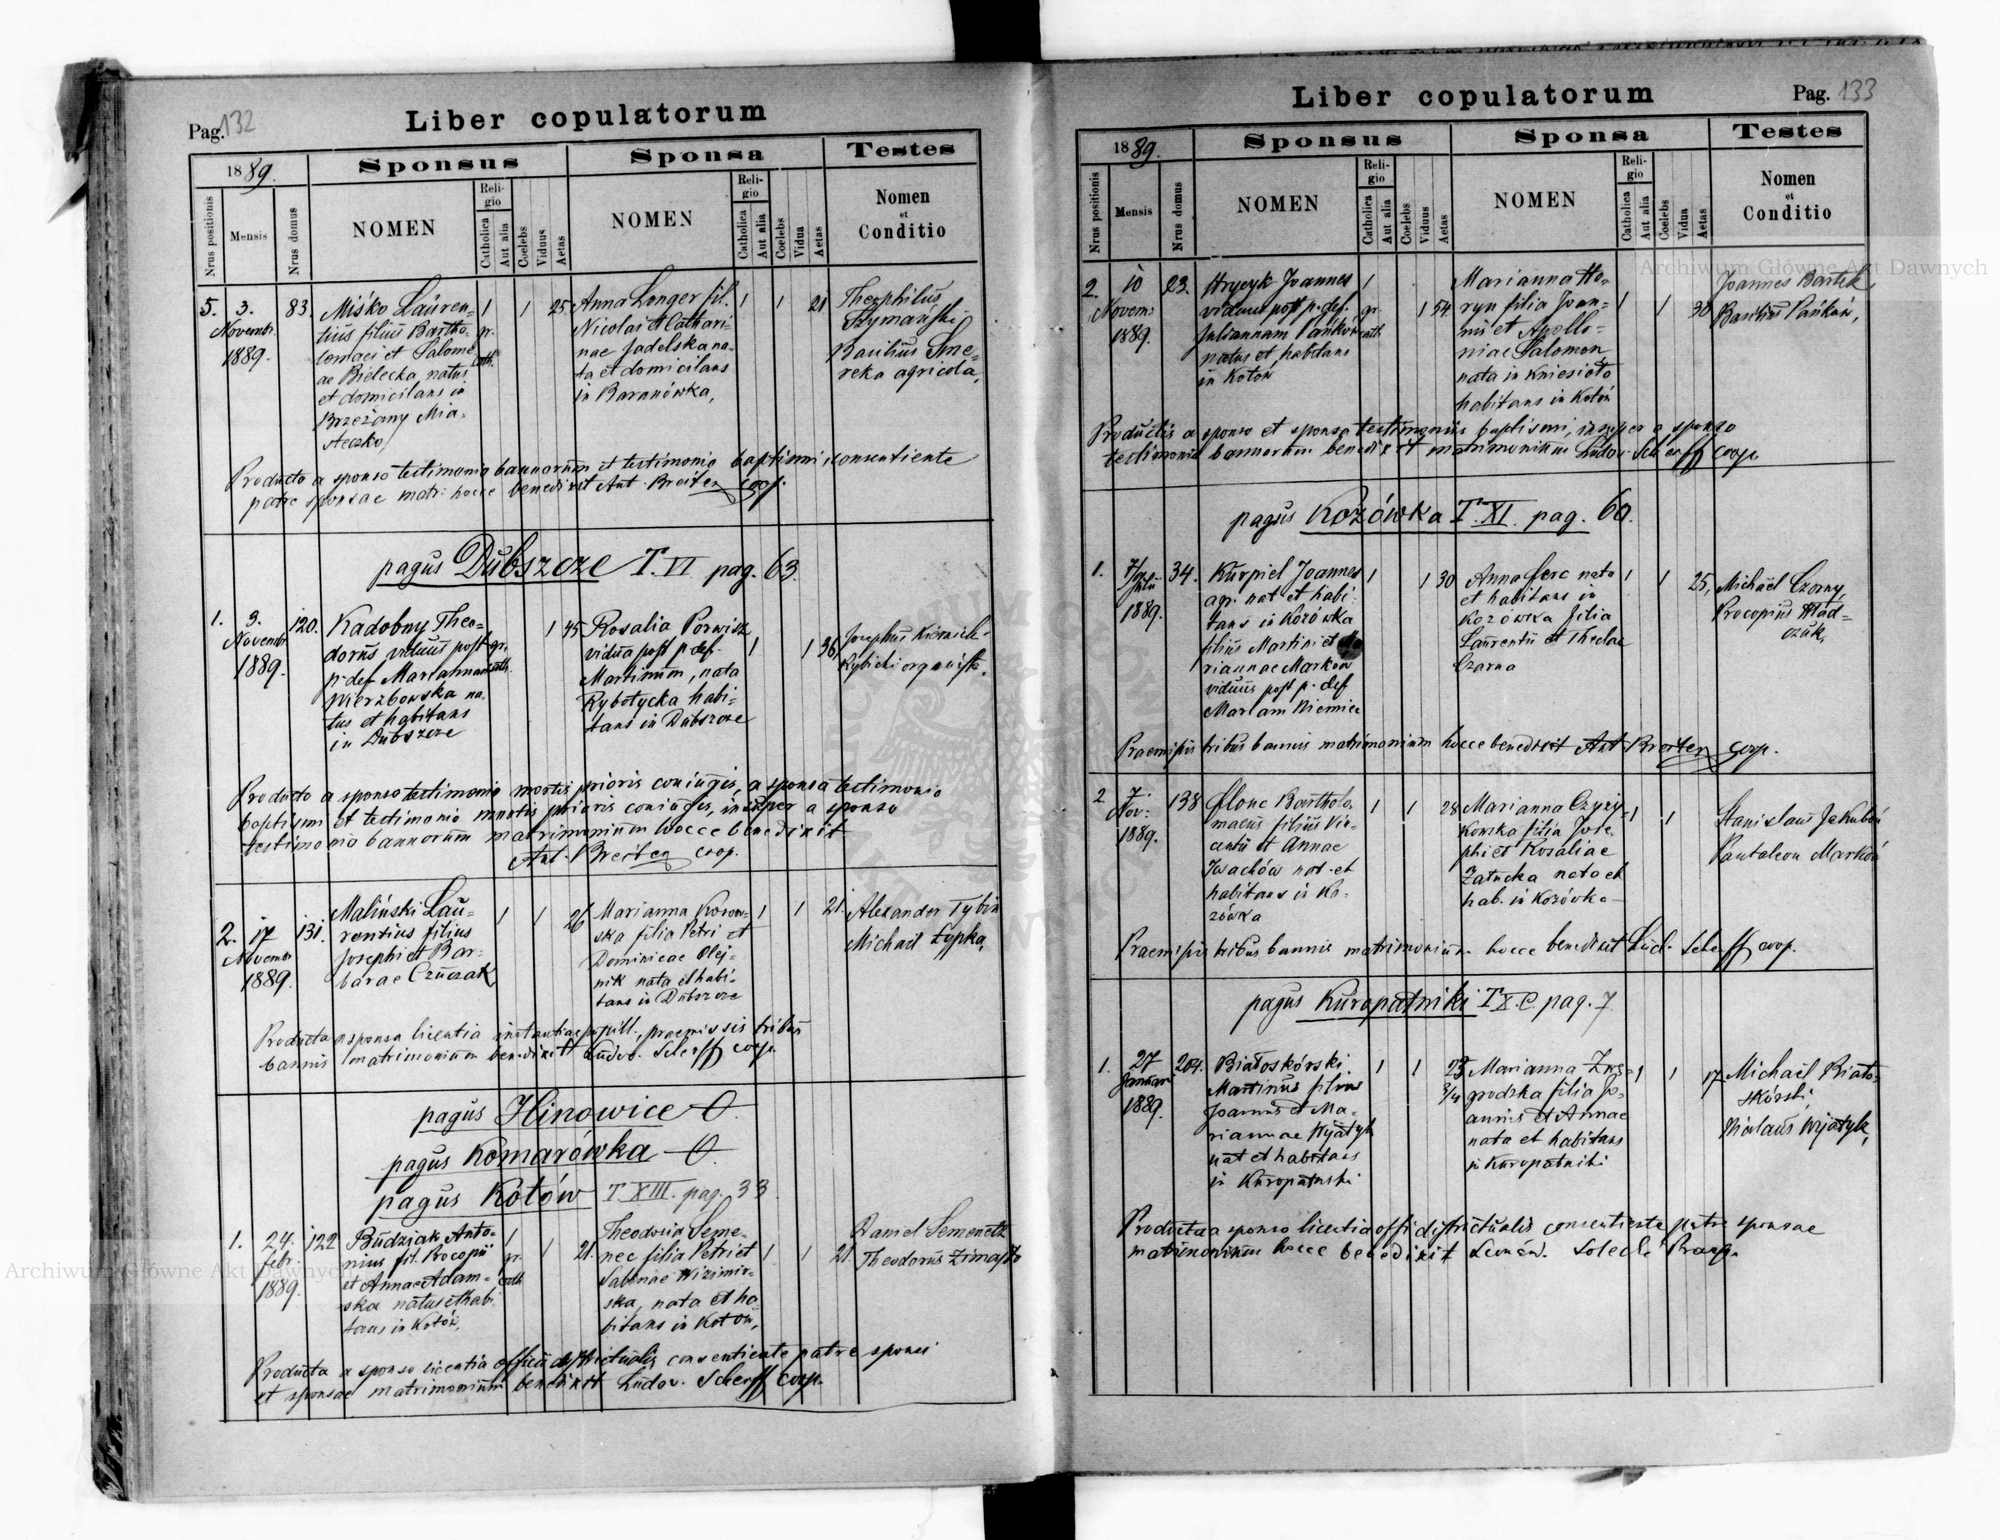 Pag. 132
Liber copulatorum
1889.
Sponsus
Sponsa
Testes
Nrus positionis
Mensis
Nrus domus
NOMEN
Religio
Catholica
Aut alia
Coelebs
Viduus
Aetas
NOMEN
Religio
Catholica
Aut alia
Coelebs
Vidua
Aetas
Nomen
et
Conditio
5. 3. Novembr. 1889. 83.
Miśko Lauren-
tius filius Bartho-
lomaei et Salome-
ae Bielecka, natus
et domicilans in
Brzeżany Mia-
steczko
1 gr. cath. 1 25
Anna Longer fil.
Nicolai et Cathari-
nae Jadelska na-
ta et domicilans
in Baranówka,
1 1 21
Theophilus
Szymański
Basilius Sme-
reka agricola,
Producto a sponso testimonio bannorum et testimonio baptismi, consentiente
patre sponsae matr: hocce benedixit Ant. Breiter coop.
pagus Dubszcze T. VI pag. 63.
1. 3. Novembr. 1889. 120.
Kadobny Theo-
dorus viduus post
p. def Mariannam
Wierzbowska na-
tus et habitans
in Dubszcze
gr. cath. 1 45
Rosalia Porwisz
vidua post p. def.
Martinum, nata
Rybotycka habi-
tans in Dubszcze
1 1 36
Josephus
Rybicki organista.
Producto a sponso testimonio mortis prioris coniugis, a sponsa testimonio
baptism et testimonio mortis prioris coniugis, insuper a sponso
testimonio bannorum matrimonium hocce benedixit
Ant. Breiter coop.
2. 17 Novembr 1889. 131.
Maliński Lau-
rentius filius
Josephi et Bar-
barae Czuczak,
1 1 26
Marianna Kosow-
ska filia Petri et
Dominicae Olej-
nik nata et habi-
tans in Dubszcze
1 1 21.
Alexander Tybin
Michael Łypka,
Producta a sponsa licentia instantiae pupill., praemissis tribus
bannis matrimonium benedixit Ludov. Scherff coop.
pagus Hinowice 0.
pagus Komarówka 0.
pagus Kotów T XIII. pag. 33
1. 24. febr: 1889. 122
Budziak Anto-
nius fil. Procopii
et Annae Adam-
ska natus et habi
tans in Kotów,
1 gr. cath 1 21.
Theodosia Seme-
nec filia Petri et
Sabinae Wizimir-
ska, nata et ha
bitans in Kotów,
1 1 21.
Daniel Semenetz
Theodorus Zimasto
Producta a sponso licentia officii districtualis consentiente patre sponsi
et sponsae matrimonium benedixit Ludov. Scherff coop.
Pag. 133
Liber copulatorum
1889.
Sponsus
Sponsa
Testes
Nrus positionis
Mensis
Nrus domus
NOMEN
Religio
Catholica
Aut alia
Coelebs
Viduus
Aetas
NOMEN
Religio
Catholica
Aut alia
Coelebs
Vidua
Aetas
Nomen
et
Conditio
2. 10 Novem: 1889. 23.
Hrycyk Joannes
viduus post p. def.
Juliannam Pańków
natus et habitans
in Kotów
1 gr. cath 1 54
Marianna Ho-
ryn filia Joan-
nis et Apollo-
niae Salomon
nata in Kniesioło
habitans in Kotów
1 1 38
Joannes Bartek
Basilius Pańków,
Productis a sponso et sponsa testimoniis baptismi, insuper a sponso
testimonio bannorum benedixit matrimonium Ludov. Scherff coop.
pagus Kozówka T. XI. pag. 60.
1. 7/ Julii 1889. 34.
Kurpiel Joannes
agr. nat et habi-
tans in Kozówka
filius Martini et Ma
riannae Markow
viduus post p. def
Mariam Niemiec
1 1 30
Anna Serc nata
et habitans in
Kozówka filia
Laurentii et Theclae
Czarna
1 1 25,
Michael Czorny,
Procopius Hład-
czuk,
Praemissis tribus bannis matrimonium hocce benedixit Ant Breiter coop.
2 7. Nov: 1889. 138
Olone Bartholo
maeus filius Vin-
centii et Annae
Iwachów nat. et
habitans in Ko-
zówka
1 1 28
Marianna Czyży-
kowska filia Jose-
phi et Rosaliae
Załucka nata et
hab. in Kozówka
1 1
Stanislaus Jakubów
Pantaleon Marków
Praemissis tribus bannis matrimonium hocce benedixit Lud. Scherff coop.
pagus Kuropatniki T X. C. pag. 7
1. 27 Januar 1889. 204.
Białoskórski
Martinus filius
Joannis et Ma-
riannae Wijatyk
nat et habitans
in Kuropatniki
1 1 23 3/4
Marianna Zag-
grodzka filia Jo-
annis et Annae
nata et habitans
in Kuropatniki
1 1 17
Michael Biało-
skórski
Nicolaus Wijatyk,
Producta a sponso licentia offi districtualis consentiente patre sponsae
matrimonium hocce benedixit Solecki
Archiwum Główne Akt Dawnych
Archiwum Główne Akt Dawnych